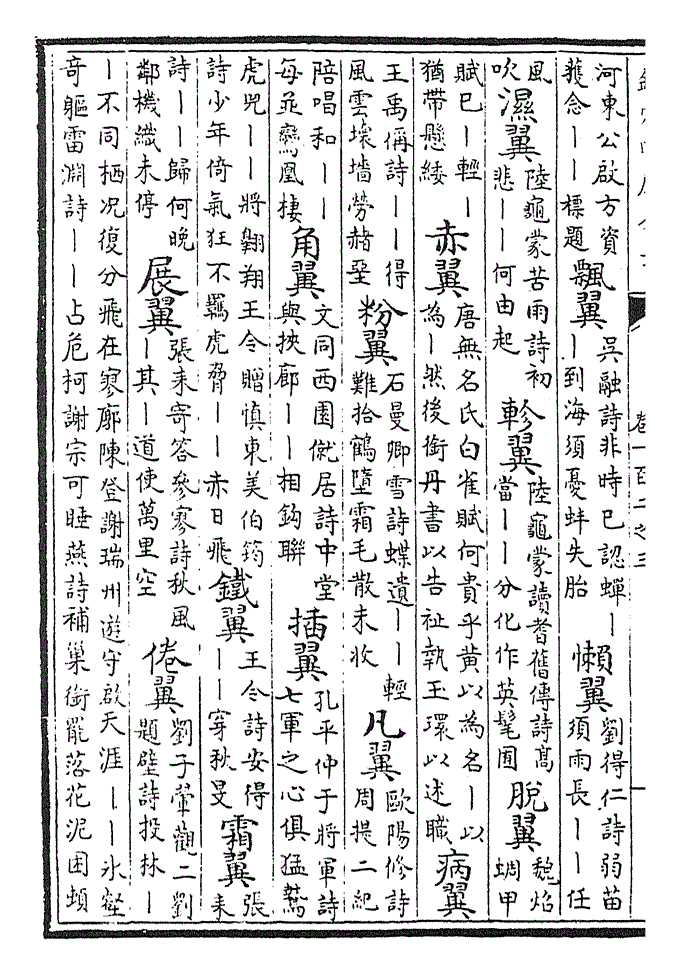 河東公啟方資
䕶念――標題
飄翼
吳融詩非時已認蟬―
―到海須憂蚌失胎
懶翼
劉得仁詩弱苗
須雨長――任
風
吹
濕翼
陸龜蒙苦雨詩初
悲――何由起
軫翼
陸龜蒙讀耆舊傳詩髙
當――分化作英髦囿
脱翼
魏焰
蜩甲
賦巳―輕―
猶帶懸緌
赤翼
唐無名氏白雀賦何貴乎黄以為名―以
為―然後銜丹書以告祉執玉環以述職
病翼
王禹偁詩――得
風雲壊墻勞赭堊
粉翼
石曼卿雪詩蝶遺――輕
難拾鶴墮霜毛散未收
凡翼
歐陽修詩
周提二紀
陪唱和――
每並鸞凰棲
角翼
文同西園僦居詩中堂
與挾廊――相鈎聯
插翼
孔平仲于將軍詩
七軍之心俱猛鷙
虎兕――將翺翔王令贈慎東美伯筠
詩少年倚氣狂不羈虎脅――赤日飛
鐵翼
王令詩安得
――穿秋旻
霜翼
張
耒
詩――歸何晚
鄰機織未停
展翼
張耒寄答參寥詩秋風
―其―道使萬里空
倦翼
劉子翬觀二劉
題壁詩投林―
―不同栖况復分飛在寥廓陳登謝瑞州遊守啟天涯――氷壑
竒軀雷淵詩――占危柯謝宗可睡燕詩補巢銜罷落花泥困頓